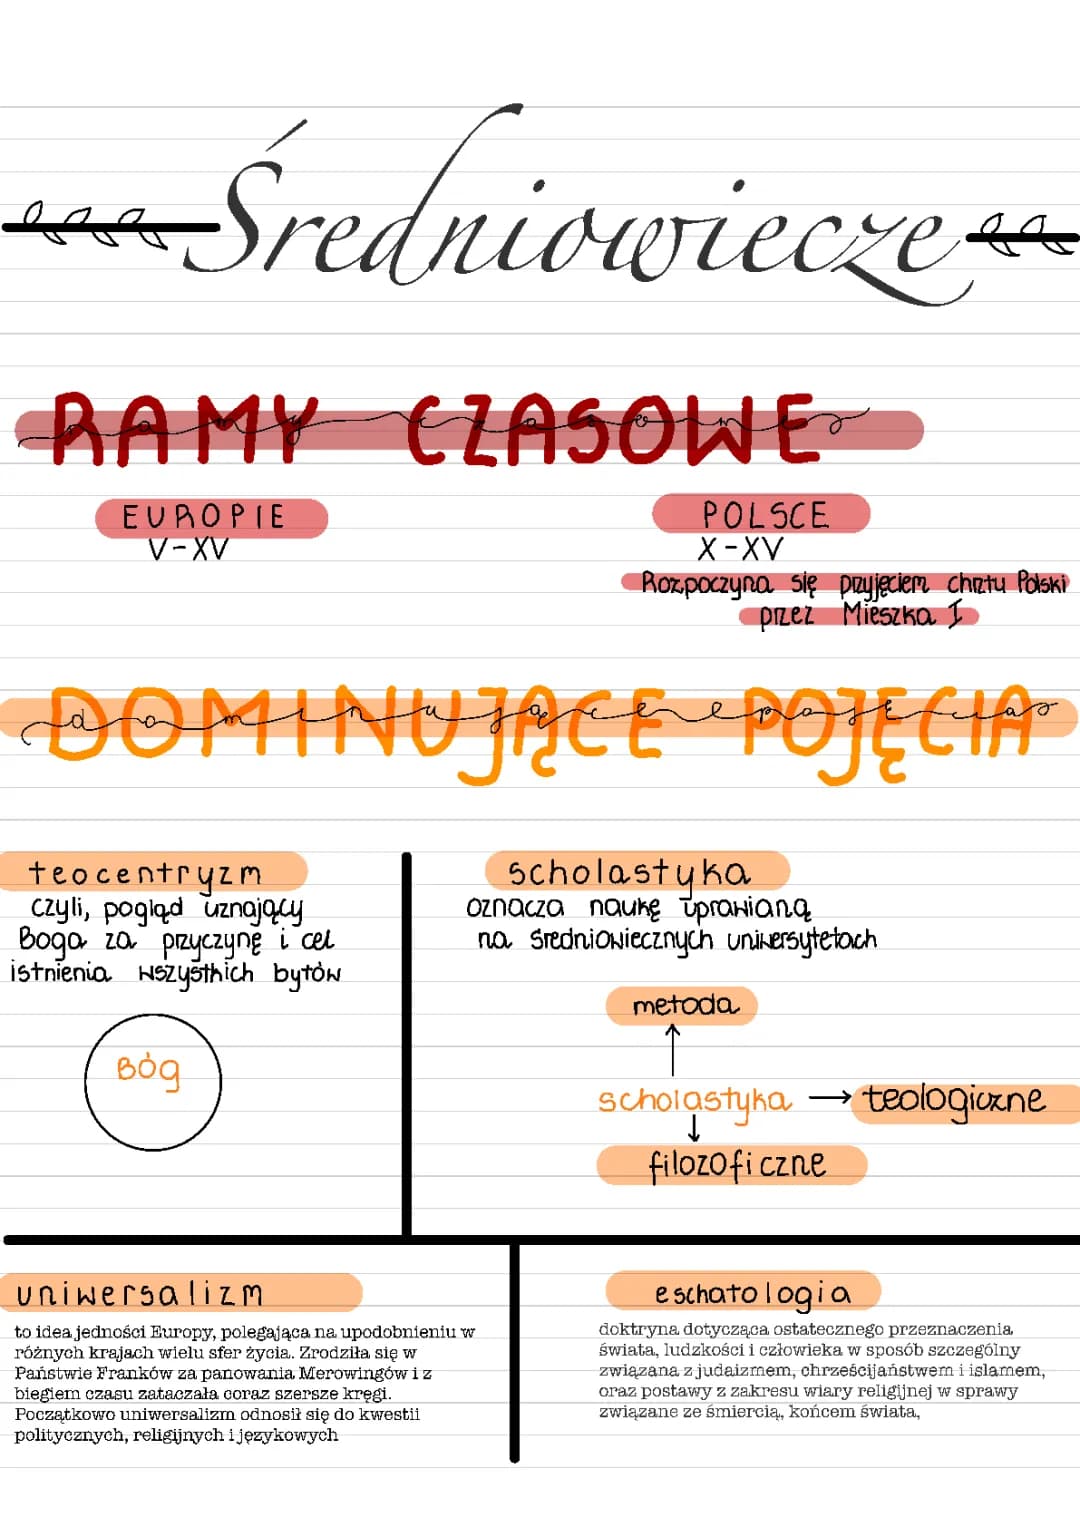 Średniowiecze
RAMY CZASOWE
ramy czasowe
EUROPIE
V-XV
POLSCE
X-XV
Rozpoczyna się przyjęciem chrztu Polski
przez Mieszka I
DOMINUJĄCE POJĘCIA
dominujące pojęcia
teocentryzm
czyli, pogląd uznający
Boga za przyczynę i cel
istnienia wszystkich bytów
Bóg
scholastyka
oznacza naukę uprawianą
na średniowiecznych uniwersytetach
metoda
scholastyka → teologiczne
filozoficzne
uniwersalizm
to idea jedności Europy, polegająca na upodobnieniu w
różnych krajach wielu sfer życia. Zrodziła się w
Państwie Franków za panowania Merowingów i z
biegiem czasu zataczała coraz szersze kręgi.
Początkowo uniwersalizm odnosił się do kwestii
politycznych, religijnych i językowych
eschatologia
doktryna dotycząca ostatecznego przeznaczenia
świata, ludzkości i człowieka w sposób szczególny
związana z judaizmem, chrześcijaństwem i islamem,
oraz postawy z zakresu wiary religijnej w sprawy
związane ze śmiercią, końcem świata,